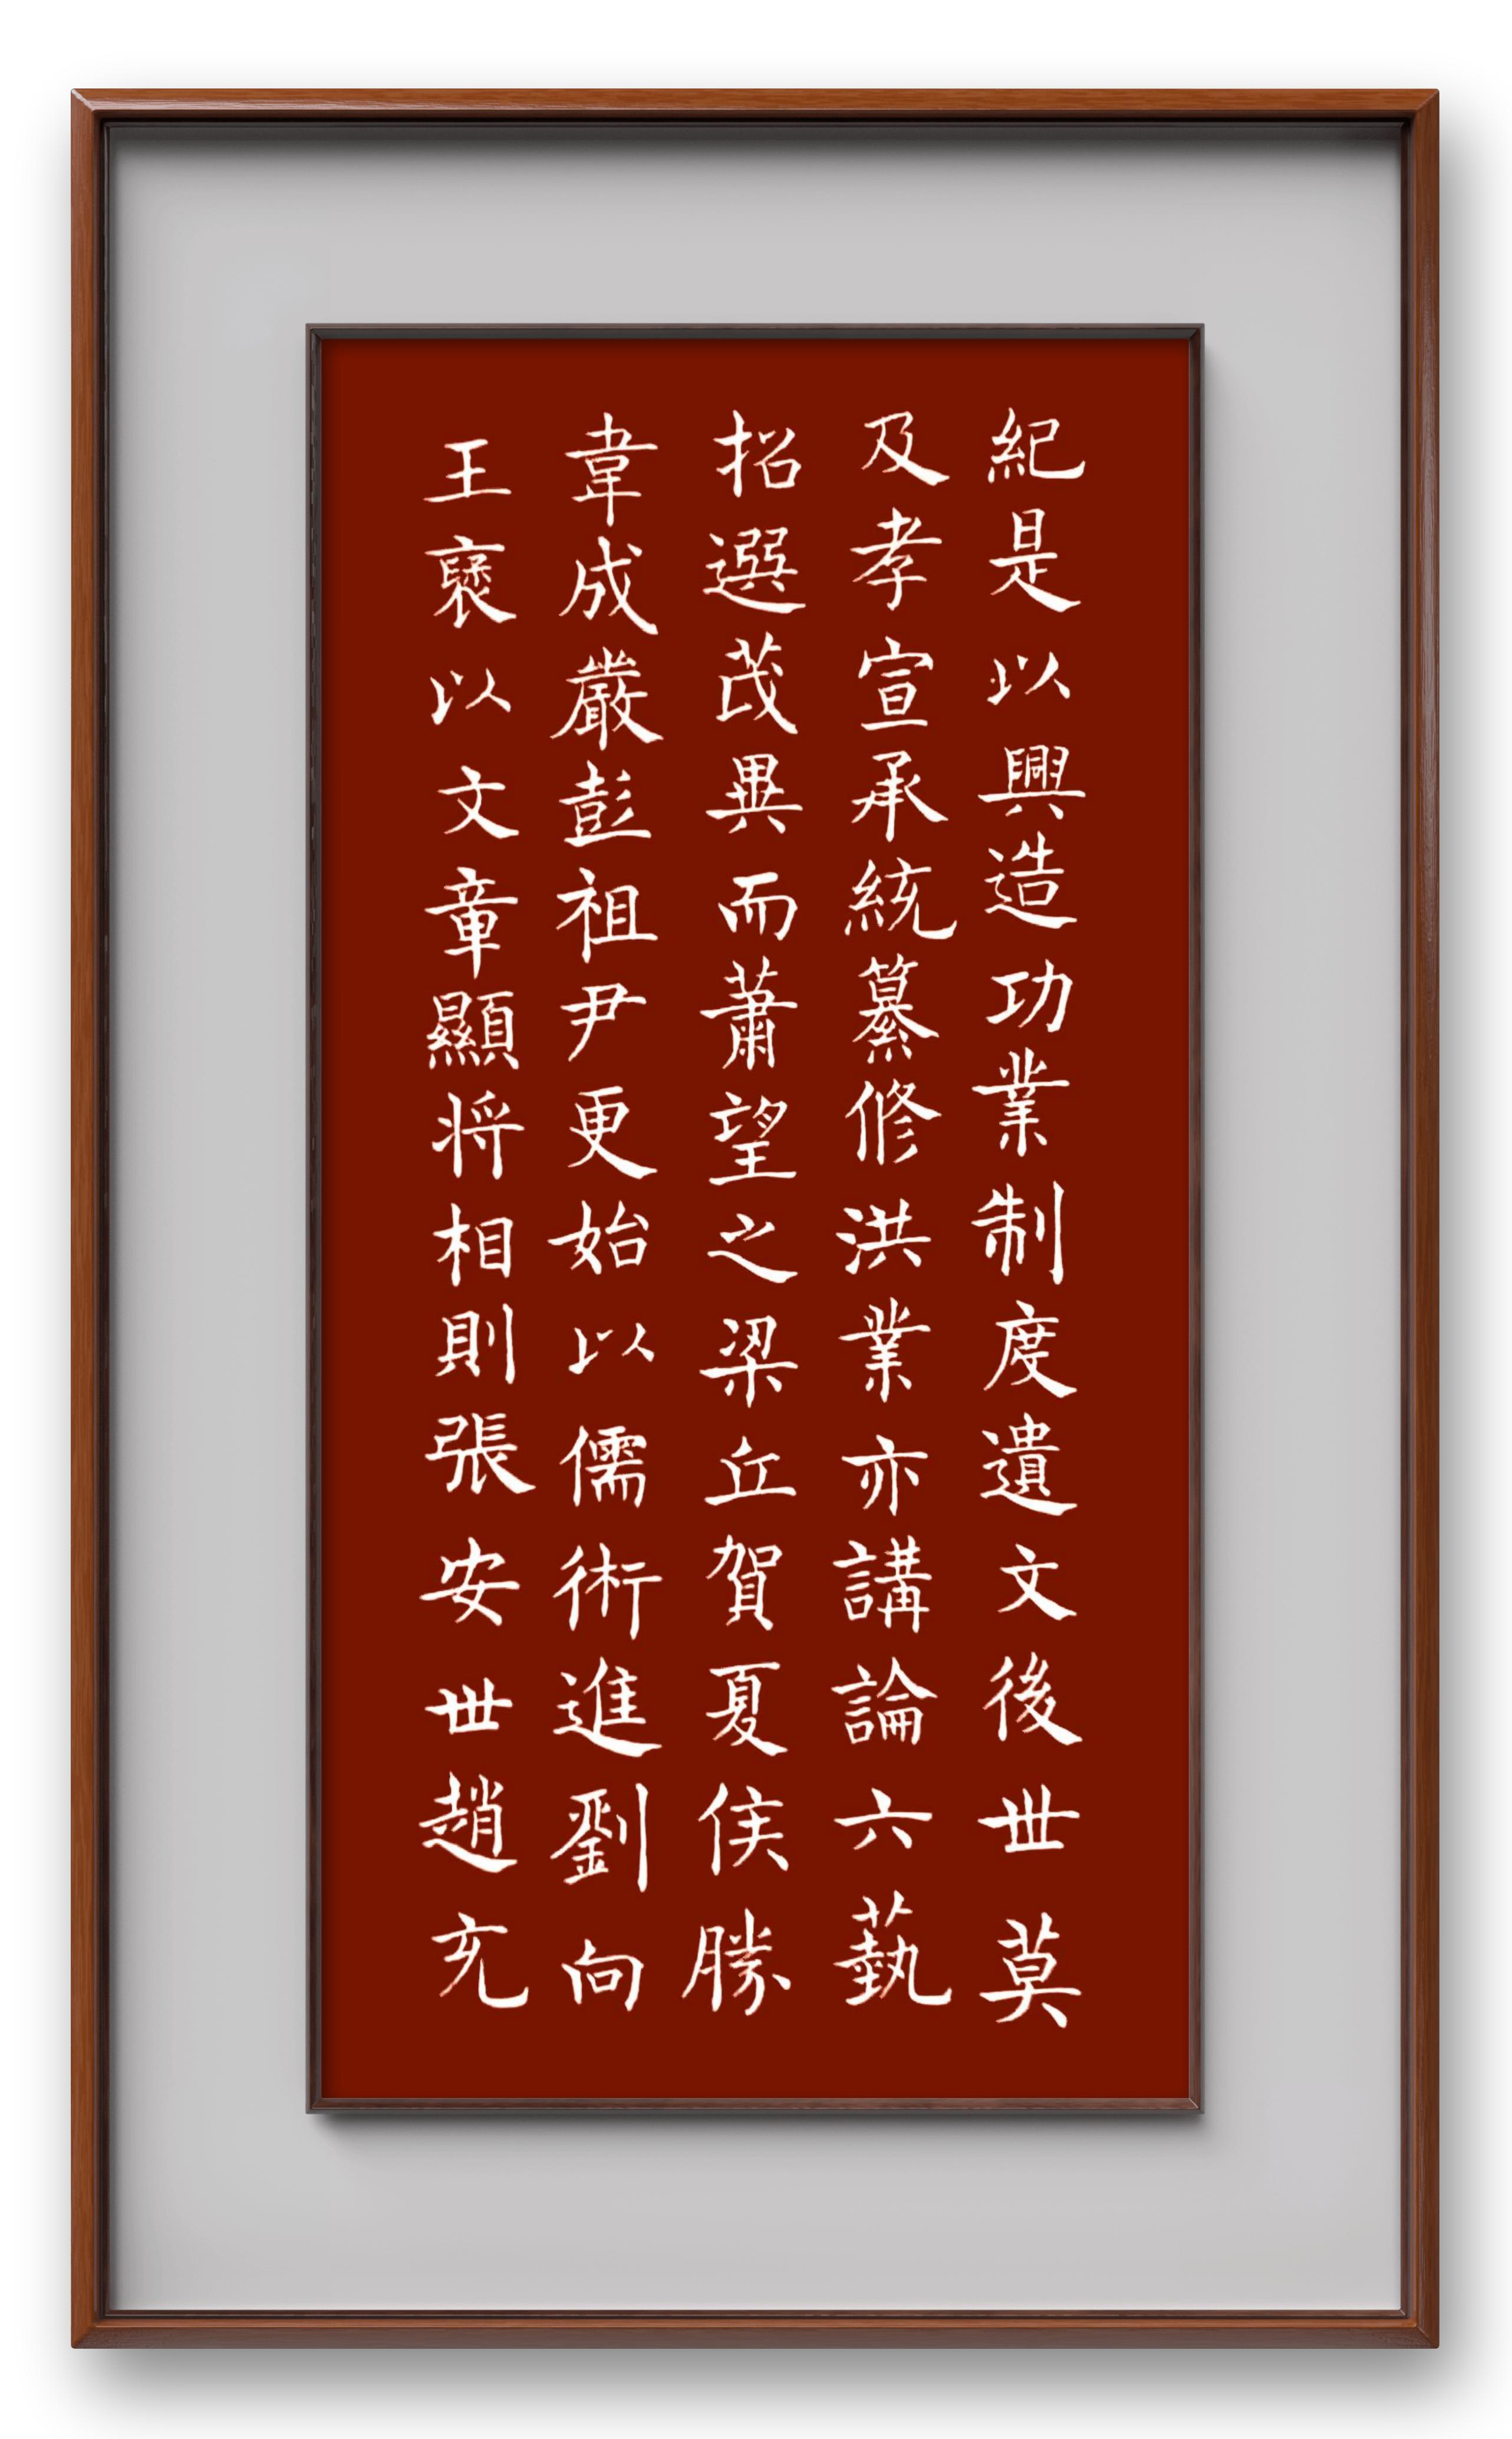 紀是以興造功業制度遺文後世莫
及孝宣承統纂修洪業亦講論六藝
招選茂異而蕭望之梁丘賀夏侯勝
韋成嚴彭祖尹更始以儒術進劉向
王襃以文章顯将相則張安世趙充